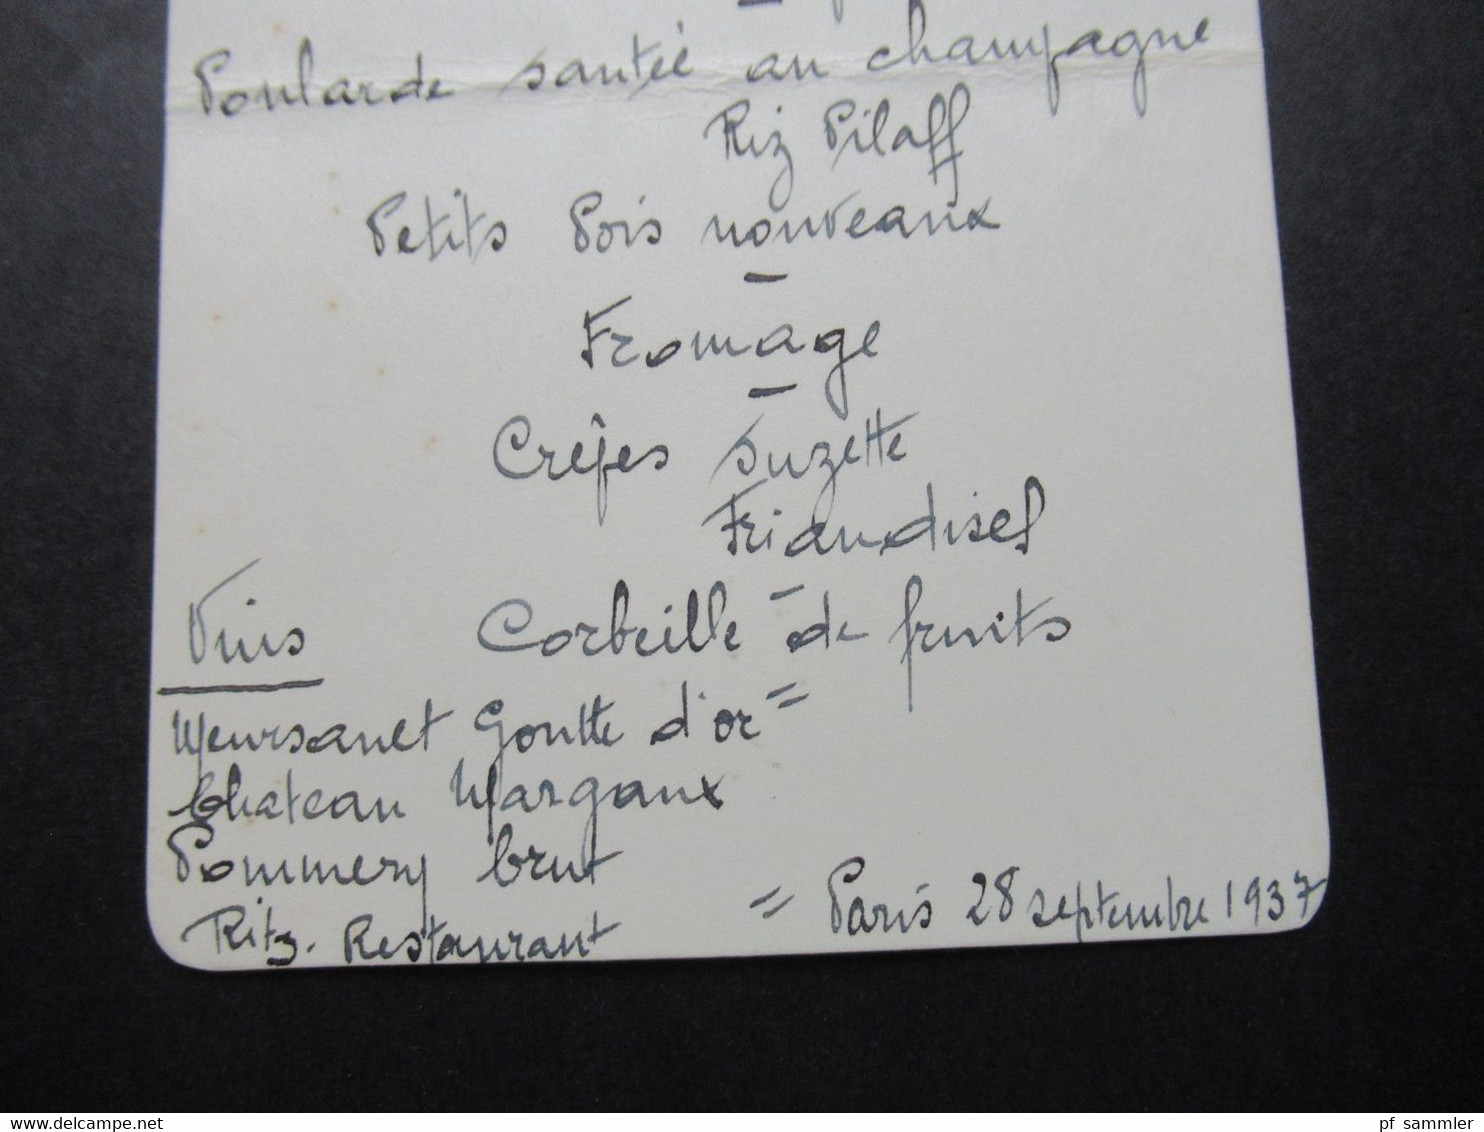 Poularde sautée au champagne
Riz Pilaff
Petits Pois nouveaux
Fromage
Crêpes Suzette
Friandises
Corbeille de fruits
Vins
Meursault Goutte d'or
Chateau Margaux
Pommery brut
Ritz. Restaurant = Paris 28 septembre 1937
www.delcampe.net
pf_sammler